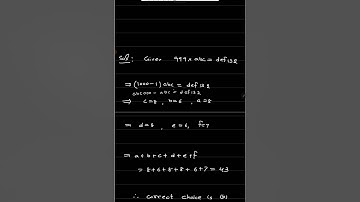 Sol : Given 999 x abc = def132
⇒ (1000-1) abc = def132
abc000 - abc = def132
⇒ c=8, b=6, a=8
⇒ d=8, e=6, f=7
⇒ a+b+c+d+e+f
= 8+6+8+8+6+7 = 43
∴ correct choice is (B)